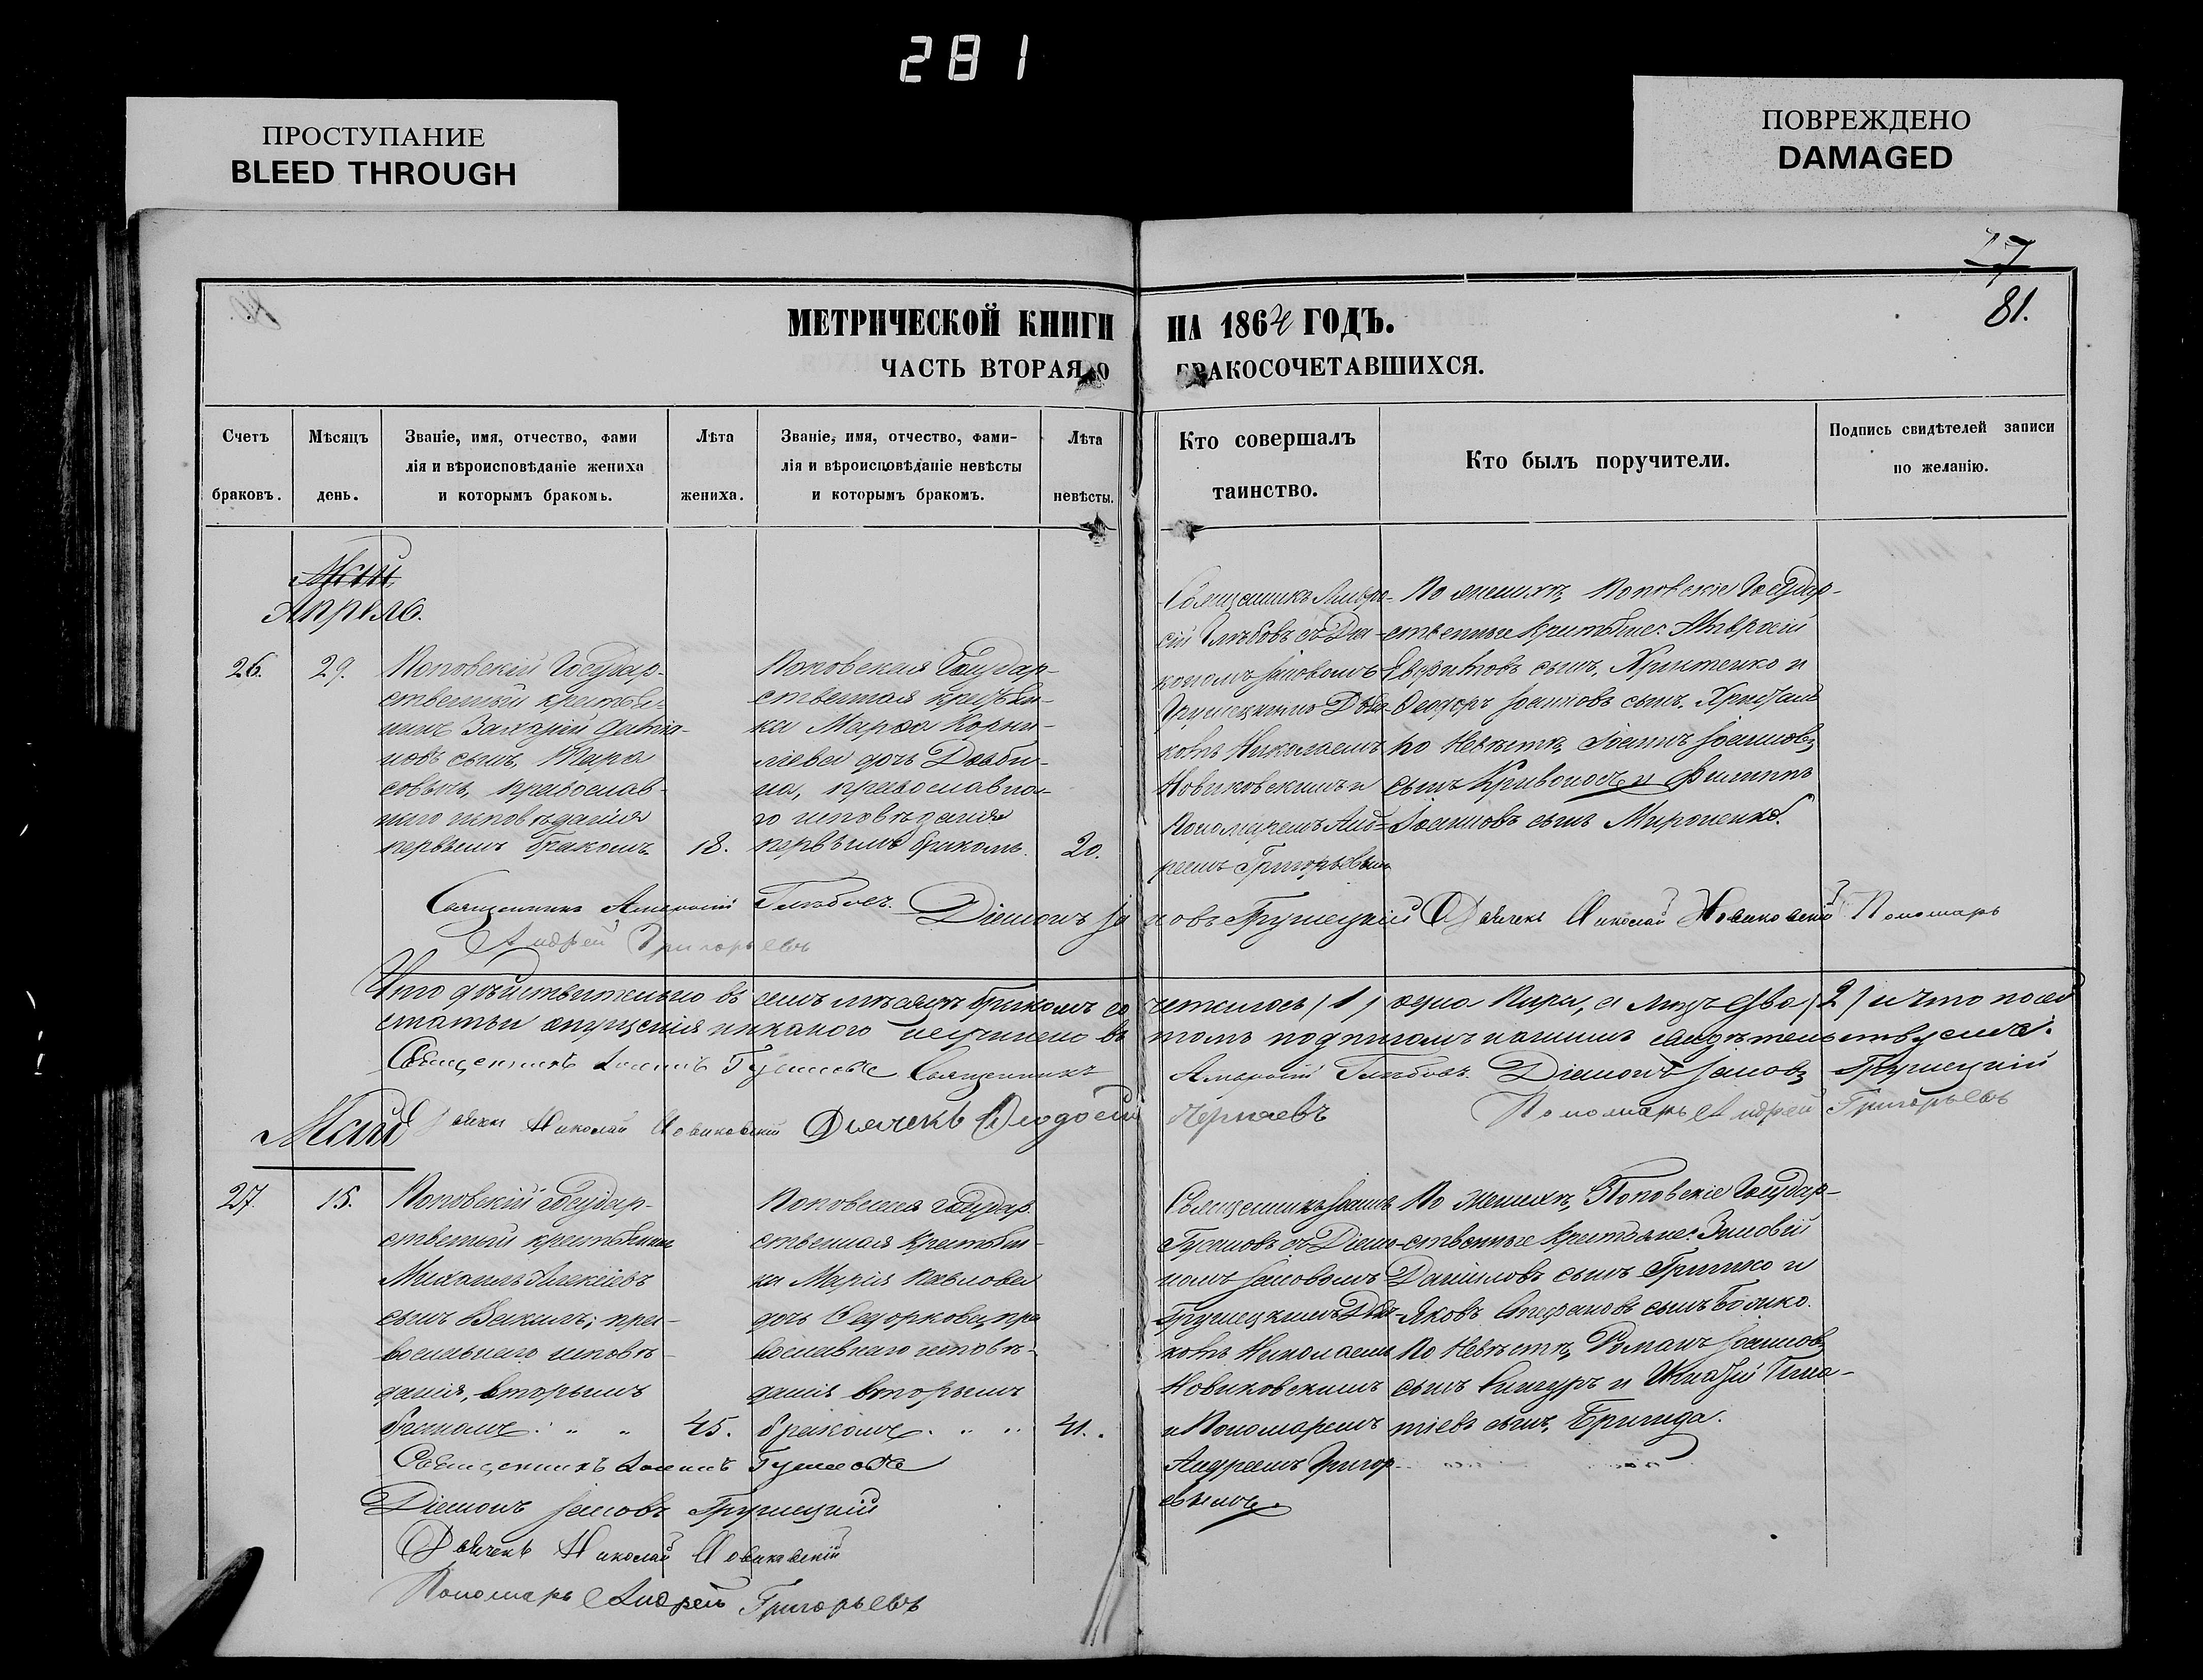 281
ПРОСТУПАНИЕ
BLEED THROUGH
ПОВРЕЖДЕНО
DAMAGED
81.
МЕТРИЧЕСКОЙ КНИГИ НА 1864 ГОДЪ.
ЧАСТЬ ВТОРАЯ О БРАКОСОЧЕТАВШИХСЯ.
Счетъ
браковъ.
Мѣсяцъ
день.
Званіе, имя, отчество, фами
лія и вѣроисповѣданіе жениха
и которымъ бракомъ.
Лѣта
жениха.
Званіе, имя, отчество, фами-
лія и вѣроисповѣданіе невѣсты
и которымъ бракомъ.
Лѣта
невѣсты.
Кто совершалъ
таинство.
Кто былъ поручители.
Подпись свидѣтелей записи
по желанію.
Май
Апрѣль.
26.
29.
Поповскій Государ-
ственный крестья-
нинъ Захарій
новъ сынъ
православ-
наго исповѣданія
первымъ бракомъ
18.
Поповская Государ-
ственная крестьян-
ка Марфа Корни-
ліева дочь
на, православна-
го исповѣданія
первымъ бракомъ
20.
Священникъ Амвро-
сій Глѣбовъ съ Діа-
кономъ Іаковомъ
Грушецкимъ Дья-
комъ Николаемъ
Новиковскимъ и
Пономаремъ Анд-
реемъ Григорьевымъ
По женихѣ, Поповскіе Государ-
ственные Крестьяне:
сынъ, Христенко и
Феодоръ Іоанновъ сынъ,
по Невѣстѣ, Іоаннъ Іоанновъ
сынъ Кривоносъ и Филиппъ
Іоанновъ сынъ Мироненко.
Священникъ Амвросій Глѣбовъ. Діаконъ Іаковъ Грушецкій Дьячекъ Николай Новиковскій Пономарь
Андрей Григорьевъ
Что дѣйствительно въ семъ мѣсяцѣ бракомъ сочеталось (1) одна пара, а лицъ два (2) и что
статьи опущенія никакого неучинено въ томъ подписомъ нашимъ свидѣтельствуемъ.
Священникъ Іоаннъ Гусаковъ Священникъ Амвросій Глѣбовъ. Діаконъ Іаковъ Грушецкій
Дьячекъ Николай Новиковскій Дьячекъ Феодосій Чернаевъ Пономарь Андрей Григорьевъ
Май
27.
15.
Поповскій государ-
ственный крестьянинъ
Михаилъ Алексіевъ
сынъ пра-
вославнаго исповѣ-
данія, вторымъ
бракомъ.
45.
Поповская государ-
ственная Крестьян-
ка Марія Павлова
дочь пра
вославнаго исповѣ-
данія вторымъ
бракомъ.
41.
Священникъ Іоаннъ
съ Діако-
номъ Іаковомъ
Грушецкимъ Дья-
комъ Николаемъ
Новиковскимъ
и Пономаремъ
Андреемъ Григор-
евымъ.
По женихѣ, Поповскіе Государ-
ственные Крестьяне: Зиновій
Даниловъ сынъ Гришко и
Яковъ Стефановъ сынъ Бойко.
По Невѣстѣ, Романъ Іоанновъ
сынъ и Игна-
тіевъ сынъ,
Священникъ Іоаннъ
Діаконъ Іаковъ Грушецкій
Дьячекъ Николай Новиковскій
Пономарь Андрей Григорьевъ